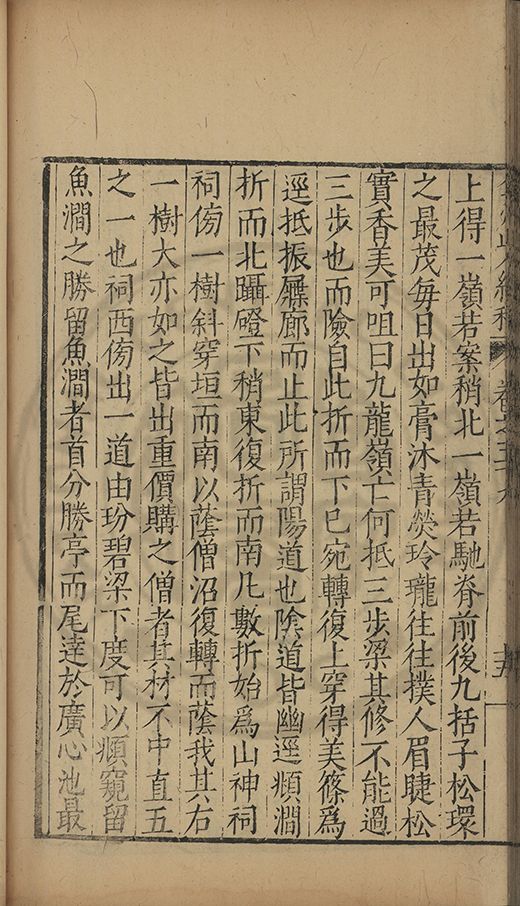 上得一嶺若案稍北一嶺若馳脊前後九括子松環
之最茂每日出如膏沐青熒玲瓏往往撲人眉睫松
實香美可咀曰九龍嶺亡何抵三步梁其修不能過
三步也而險自此折而下已宛轉復上穿得美篠爲
逕抵振屧廊而止此所謂陽道也陰道皆幽逕瀕澗
折而北躡磴下稍東復折而南凡數折始爲山神祠
祠傍一樹斜穿垣而南以蔭僧沼復轉而蔭我其右
一樹大亦如之皆出重價購之僧者其材不中直五
之一也祠西傍出一道由玢碧梁下度可以瀕窺留
魚澗之勝留魚澗者首分勝亭而尾達於廣心池最